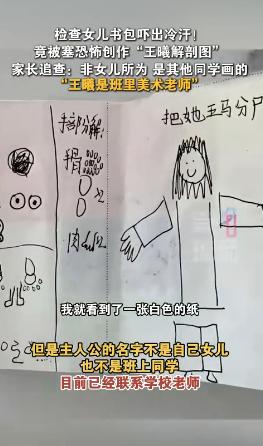 检查女儿书包吓出冷汗！
竟被塞恐怖创作“王曦解剖图”
家长追查：非女儿所为 是其他同学画的
“王曦是班里美术老师”
把她五马分尸
我就看到了一张白色的纸
但是主人公的名字不是自己女儿
也不是班上同学
目前已经联系学校老师